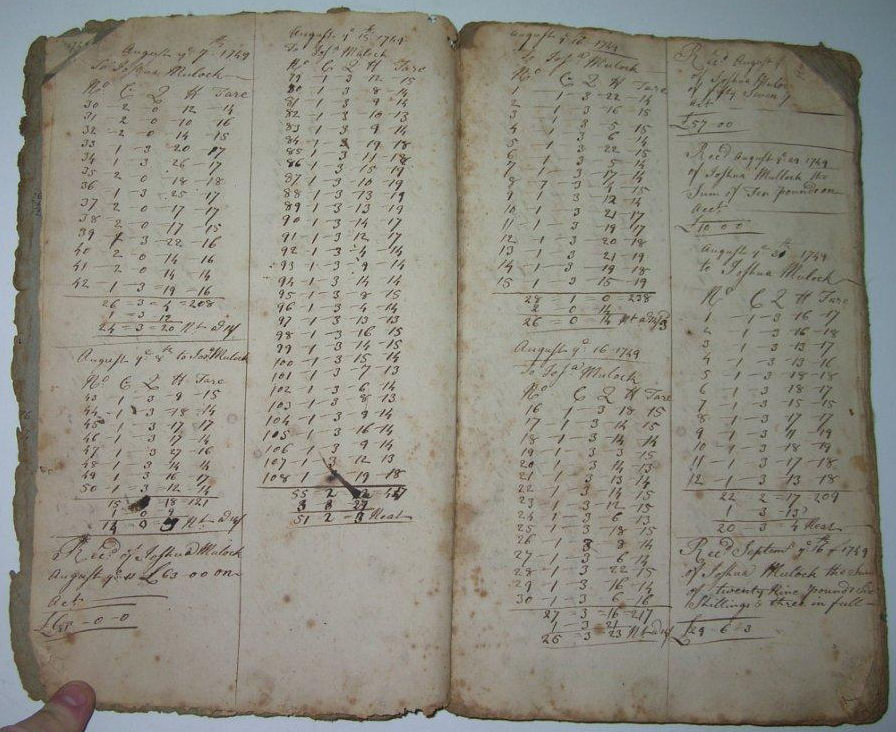 August ye 7th 1749
To Joshua Muloch
No C Q H Tare
30 - 2 0 12 - 14
31 - 2 - 0 10 - 16
32 - 2 0 14 - 15
33 - 1 - 3 20 - 17
34 1 - 3 - 26 - 17
35 2 0 18 - 18
36 1 - 3 - 25 - 17
37 - 2 - 0 - 17 - 17
38 2 0 17 - 15
39 1 - 3 - 22 - 16
40 - 2 0 14 - 16
41 - 2 0 14 - 14
42 - 1 - 3 - 19 - 16
26 = 3 = 4 = 208
1 = 3 = 12
24 = 3 = 20 Nt
August ye 8th to Jos Muloch
No C Q H Tare
43 - 1 - 3 - 9 - 15
44 - 1 - 3 - 18 - 14
45 - 1 - 3 - 17 - 17
46 - 1 - 3 - 17 - 14
47 - 1 - 3 - 27 - 16
48 - 1 - 3 14 - 14
49 1 - 3 - 16 - 17
50 - 1 - 3 - 12 - 14
15 18 = 121
1 - 0 - 9
Nt
Recd of Joshua Muloch
August ye £63 - 00 on
Act
- 0 - 0
August ye 15th 1749
To Josa Muloch
No C Q H Tare
79 - 1 - 3 12 - 15
80 - 1 - 3 8 - 14
81 - 1 - 3 9 - 14
82 - 1 - 3 - 10 - 13
83 - 1 - 3 - 9 - 14
84 - 1 - 3 19 - 18
85 - 1 - 3 11 - 18
86 - 1 - 3 - 15 - 17
87 - 1 - 3 - 10 - 19
88 - 1 - 3 - 13 - 19
89 - 1 - 3 - 13 - 19
90 - 1 - 3 14 - 17
91 - 1 - 3 - 12 - 17
92 - 1 - 3 - 4 - 14
93 - 1 - 3 - 9 - 14
94 - 1 - 3 14 - 14
95 - 1 - 3 - 8 - 15
96 - 1 - 3 - 4 - 14
97 - 1 - 3 - 13 - 13
98 - 1 - 3 16 - 15
99 - 1 - 3 14 - 15
100 - 1 - 3 15 - 14
101 - 1 - 3 - 7 - 13
102 - 1 - 3 - 6 - 14
103 - 1 - 3 - 8 - 13
104 - 1 - 3 - 9 - 14
105 - 1 - 3 - 16 - 14
106 - 1 - 3 9 - 14
107 - 1 - 3 - 12 - 13
108 - 1 19 - 18
55 2
51 2 Neat
August ye 16 1749
To Josa Muloch
No C Q H Tare
1 1 - 3 - 22 - 14
2 1 - 3 - 16 - 15
3 1 - 3 5 - 15
4 1 - 3 6 - 14
5 1 - 3 - 22 - 15
6 1 - 3 5 - 14
7 1 - 3 - 17 - 14
8 - 1 - 3 - 4 - 15
9 1 - 3 12 - 14
10 - 1 - 3 - 21 - 17
11 - 1 - 3 19 - 17
12 - 1 - 3 - 20 - 18
13 - 1 - 3 - 21 - 19
14 - 1 - 3 19 - 18
15 - 1 - 3 - 15 - 19
28 - 1 - 0 = 238
2 = 0 14
26 = 0 = 14 Nt
August ye 16 - 1749
To Josa Muloch
No C Q H Tare
16 1 - 3 18 15
17 - 1 - 3 - 14 15
18 - 1 - 3 14 14
19 - 1 - 3 15 15
20 - 1 - 3 - 14 - 13
21 - 1 - 3 14 - 14
22 - 1 - 3 14 - 15
23 - 1 - 3 12 - 15
24 - 1 - 3 - 6 - 13
25 - 1 - 3 18 - 15
26 - 1 3 - 8 - 14
27 - 1 - 3 6 - 14
28 - 1 - 3 - 22 - 15
29 - 1 - 3 16 - 14
30 - 1 - 3 6 - 16
27 - 3 = 16 = 217
1 - 3 - 21
25 = 3 23 Nt
Recd August
of Joshua Muloch
of fifty Seven
Act
£57 - 00
Recd August ye 1749
of Joshua Mulloch the
Sum of Ten pounds on
Act
£10 - 0 0
August ye 1749
to Joshua Muloch
No C Q H Tare
1 1 - 3 16 - 17
2 1 - 3 - 16 - 18
3 1 - 3 - 13 - 17
4 1 - 3 - 13 - 16
5 1 - 3 - 18 - 18
6 1 - 3 - 18 - 17
7 1 - 3 - 15 - 15
8 1 - 3 - 17 - 17
9 1 - 3 - 11 - 19
10 1 - 3 - 18 - 19
11 - 1 - 3 - 17 - 18
12 - 1 - 3 - 13 - 18
22 - 2 = 17 209
1 - 3 - 13
20 3 4 Neat
Recd Septem ye 1749
of Joshua Muloch the Sum
of twenty Nine pounds Six
Shillings & three in full
£29 - 6 - 3